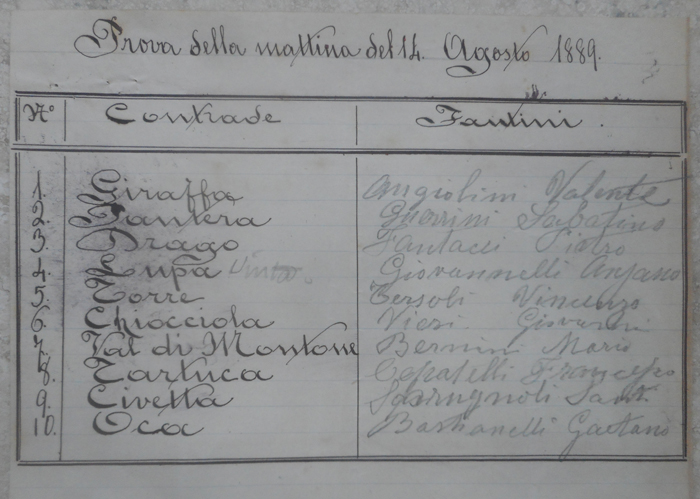 Prova della mattina del 14. Agosto 1889.
N.º Contrade Fantini.
1. Giraffa Angiolini Valente
2. Pantera Guerrini Sabatino
3. Drago Fantacci Pietro
4. Lupa Vinta. Giovannelli
5. Torre Tersoli Vincenzo
6. Chiocciola Vieri Giovanni
7. Val di Montone Bernini Mario
8. Tartuca Francesco
9. Civetta
10. Oca Bastianelli Gaetano